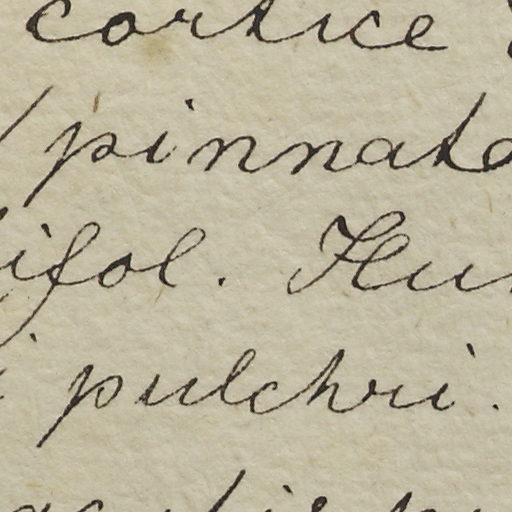 cortice
pinnato
ifol. Hu
pulchri.